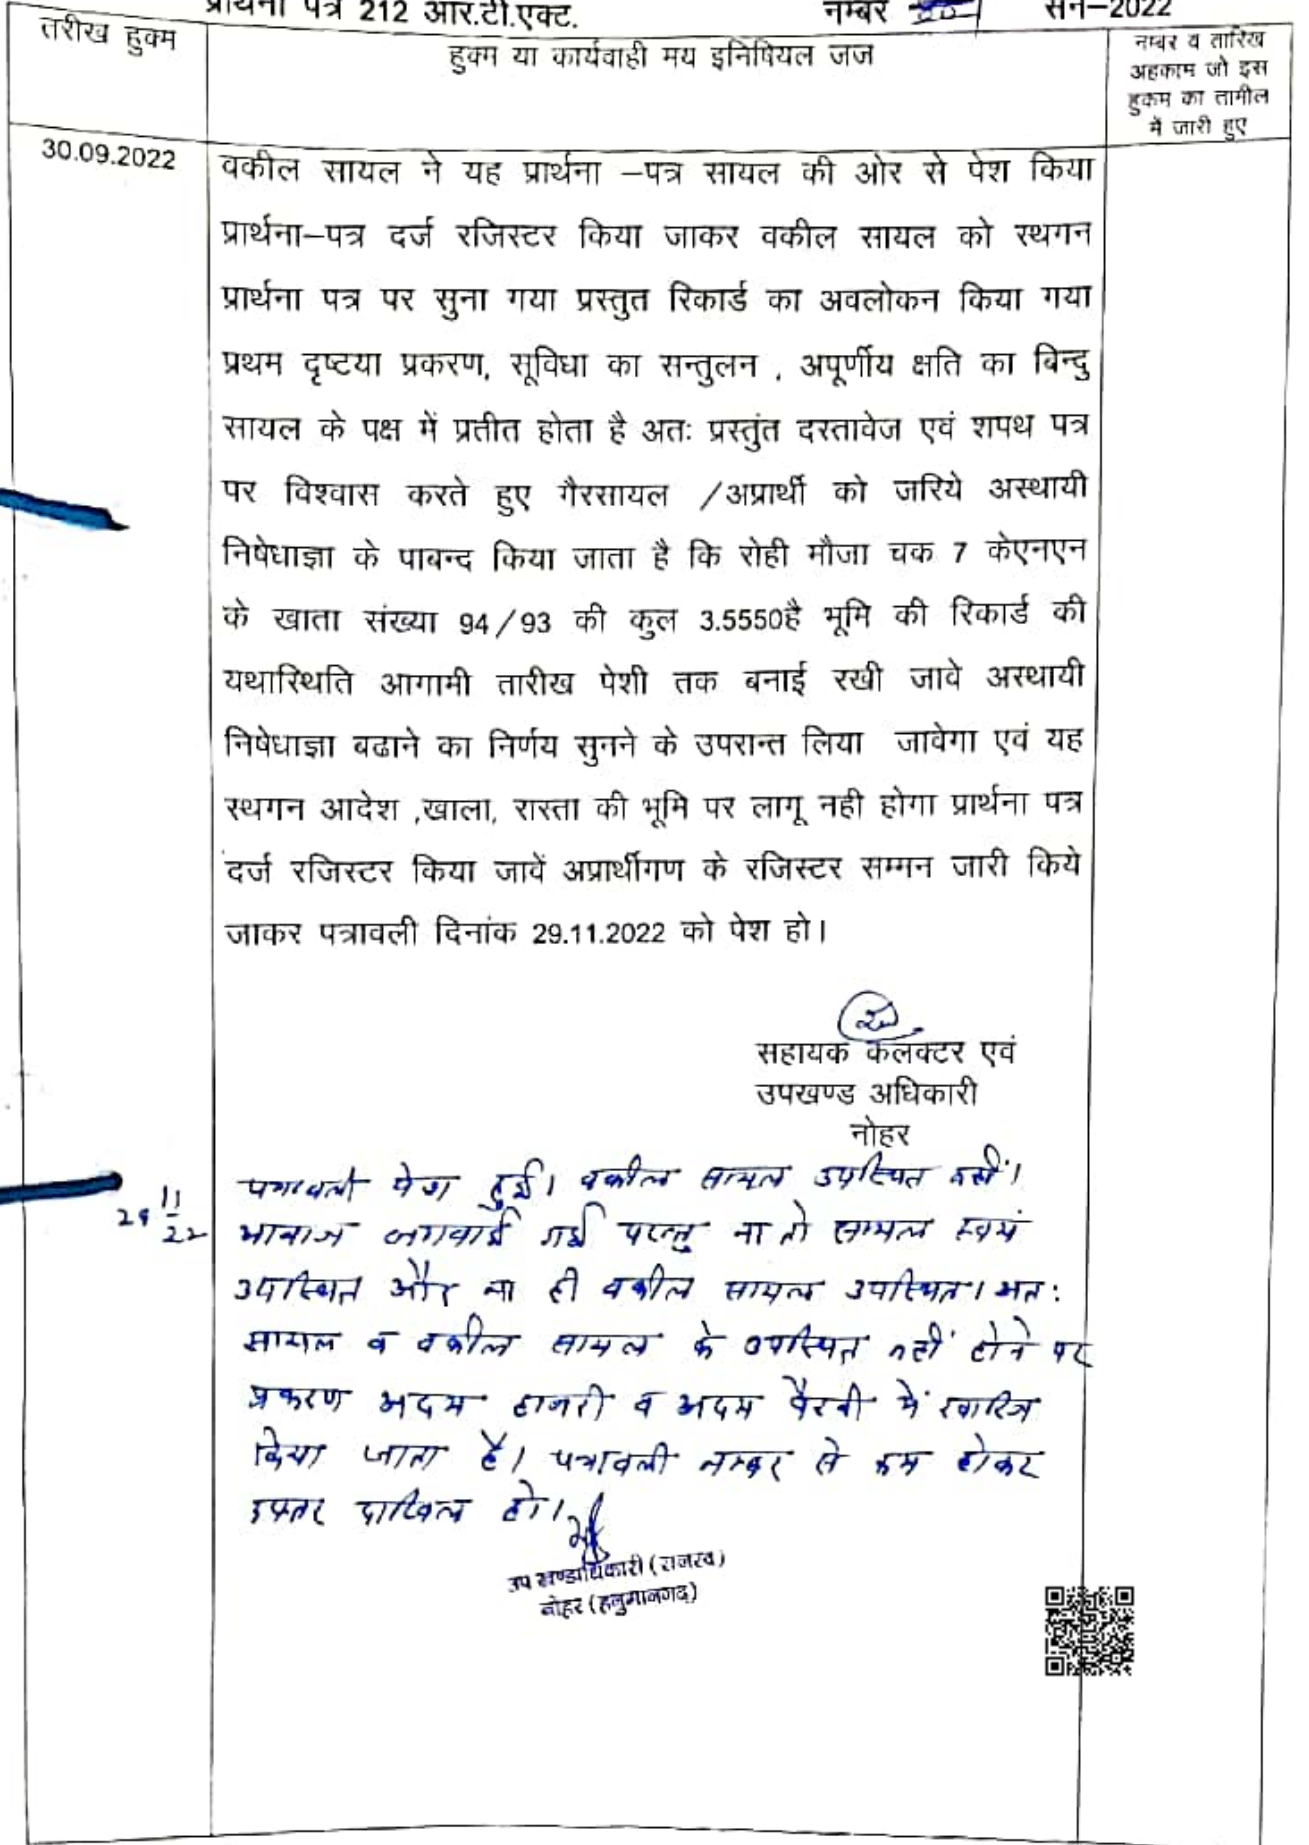 प्रार्थना पत्र 212 आर.टी.एक्ट. नम्बर सन–2022
तरीख हुक्म
हुक्म या कार्यवाही मय इनिषियल जज
नम्बर व तारिख
अहकाम जो इस
हुकम का तामील
में जारी हुए
30.09.2022
वकील सायल ने यह प्रार्थना –पत्र सायल की ओर से पेश किया
प्रार्थना–पत्र दर्ज रजिस्टर किया जाकर वकील सायल को स्थगन
प्रार्थना पत्र पर सुना गया प्रस्तुत रिकार्ड का अवलोकन किया गया
प्रथम दृष्टया प्रकरण, सूविधा का सन्तुलन , अपूर्णीय क्षति का बिन्दु
सायल के पक्ष में प्रतीत होता है अतः प्रस्तुंत दस्तावेज एवं शपथ पत्र
पर विश्वास करते हुए गैरसायल /अप्रार्थी को जरिये अस्थायी
निषेधाज्ञा के पाबन्द किया जाता है कि रोही मौजा चक 7 केएनएन
के खाता संख्या 94/93 की कुल 3.5550है भूमि की रिकार्ड की
यथास्थिति आगामी तारीख पेशी तक बनाई रखी जावे अस्थायी
निषेधाज्ञा बढाने का निर्णय सुनने के उपरान्त लिया जावेगा एवं यह
स्थगन आदेश ,खाला, रास्ता की भूमि पर लागू नही होगा प्रार्थना पत्र
दर्ज रजिस्टर किया जावें अप्रार्थीगण के रजिस्टर सम्मन जारी किये
जाकर पत्रावली दिनांक 29.11.2022 को पेश हो।
सहायक कलक्टर एवं
उपखण्ड अधिकारी
नोहर
29 11/22
पत्रावली पेश हुई। वकील सायल उपस्थित नहीं।
आवाज लगवाई गई परन्तु ना तो सायल स्वयं
उपस्थित और ना ही वकील सायल उपस्थित। अतः
सायल व वकील सायल के उपस्थित नहीं होने पर
प्रकरण अदम हाजरी व अदम पैरवी में खारिज
किया जाता है। पत्रावली नम्बर से कम होकर
दफ्तर दाखिल हो।
उप खण्डाधिकारी (राजस्व)
नोहर (हनुमानगढ)